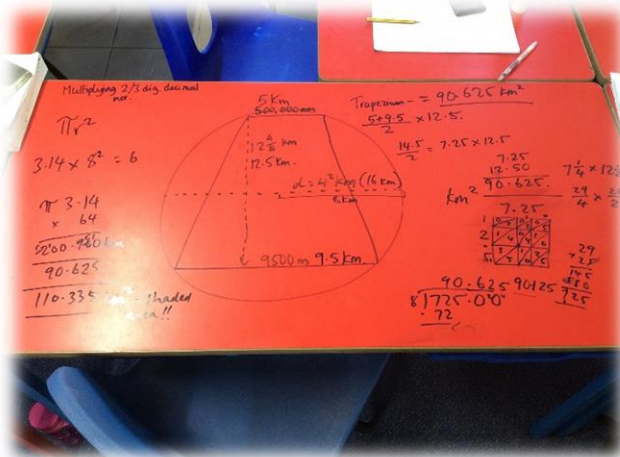 Multiplying 2/3 dig decimal
πr²
3.14 × 8² = 6
π 3.14
× 64
200.960
90.625
110.335
shaded
area!!
5 Km
500,000mm
12.5 Km.
(16 Km)
8km
9500m 9.5 Km.
Trapezium = 90.625 Km²
5+9.5 × 12.5.
2
14.5 = 7.25 × 12.5
2
7.25
12.50
90.625.
Km²
7.25
29
4
29
× 25
145
580
725
90.625
8 725.00
72